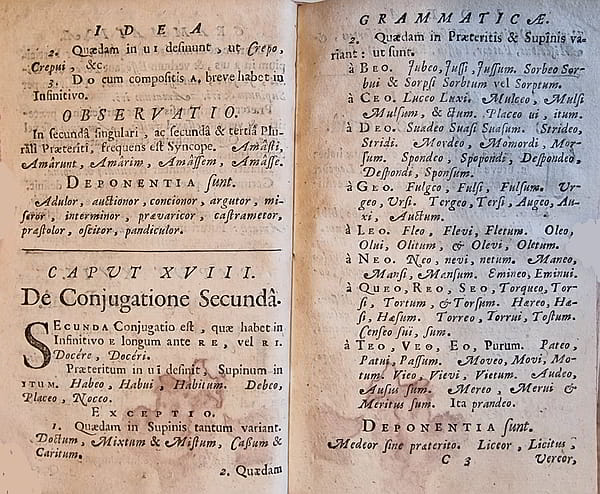 IDEA
2. Quædam in ui desinunt, ut Crepo,
Crepui, &c.
3. Do cum compositis A, breve habet in
Infinitivo.
OBSERVATIO.
In secundâ singulari, ac secundâ & tertiâ Plu-
rali Præteriti, frequens est Syncope. Amâsti,
Amârunt, Amârim, Amâssem, Amâsse.
DEPONENTIA sunt.
Adulor, auctionor, concionor, argutor, mi-
seror, interminor, prævaricor, castrametor,
præstolor, oscitor, pandiculor.
CAPUT XVIII.
De Conjugatione Secundâ.
SECUNDA Conjugatio est, quæ habet in
Infinitivo E longum ante RE, vel RI.
Docére, Docéri.
Præteritum in ui definit, Supinum in
ITUM. Habeo, Habui, Habitum. Debeo,
Placeo, Noceo.
EXCEPTIO.
1. Quædam in Supinis tantum variant.
Doctum, Mixtum & Mistum, Cassum &
Caritum.
2. Quædam
GRAMMATICÆ.
2. Quædam in Præteritis & Supinis va-
riant: ut sunt.
à BEO. Jubeo, Jussi, Jussum. Sorbeo Sor-
bui & Sorpsi Sorbtum vel Sorptum.
à CEO. Luceo Luxi. Mulceo, Mulsi
Mulsum, & ctum. Placeo ui, itum.
à DEO. Suadeo Suasi Suasum. Strideo,
Stridi. Mordeo, Momordi, Mor-
sum. Spondeo, Spopondi, Despondeo,
Despondi, Sponsum.
à GEO. Fulgeo, Fulsi, Fulsum. Ur-
geo, Ursi. Tergeo, Tersi, Augeo, Au-
xi, Auctum.
à LEO. Fleo, Flevi, Fletum. Oleo,
Olui, Olitum, & Olevi, Oletum.
à NEO. Neo, nevi, netum. Maneo,
Mansi, Mansum. Emineo, Eminui.
à QUEO, REO, SEO, Torqueo, Tor-
si, Tortum, & Torsum. Hæreo, Hæ-
si, Hæsum. Torreo, Torrui, Tostum.
Censeo sui, sum.
à TEO, VEO, EO, Purum. Pateo,
Patui, Passum. Moveo, Movi, Mo-
tum. Vieo, Vievi, Vietum. Audeo,
Ausus sum. Mereo, Merui &
Meritus sum. Ita prandeo.
DEPONENTIA sunt.
Medeor sine præterito. Liceor, Licitus,
C 3 Vereor,